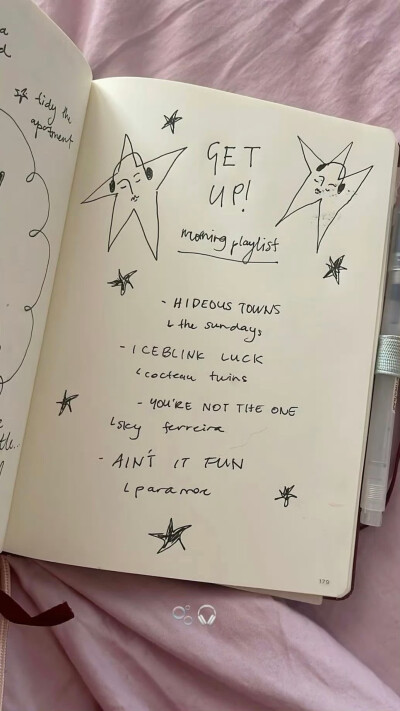 tidy the
apartment
GET
UP!
morning playlist
- HIDEOUS TOWNS
the sundays
- ICEBLINK LUCK
cocteau twins
- YOU'RE NOT THE ONE
sky ferreira
- AIN'T IT FUN
paramore
179